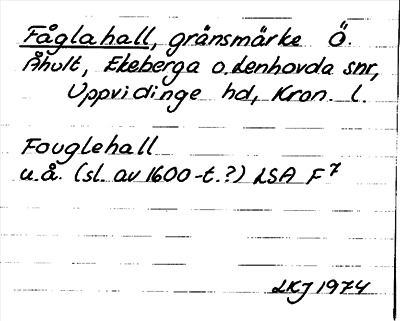 Fåglahall, gränsmärke Ö.
Åhult, Ekeberga o. Lenhovda snr,
Uppvidinge hd, Kron. l.
Fouglehall
u.å. (sl. av 1600-t.?) LSA F7
LKJ 1974